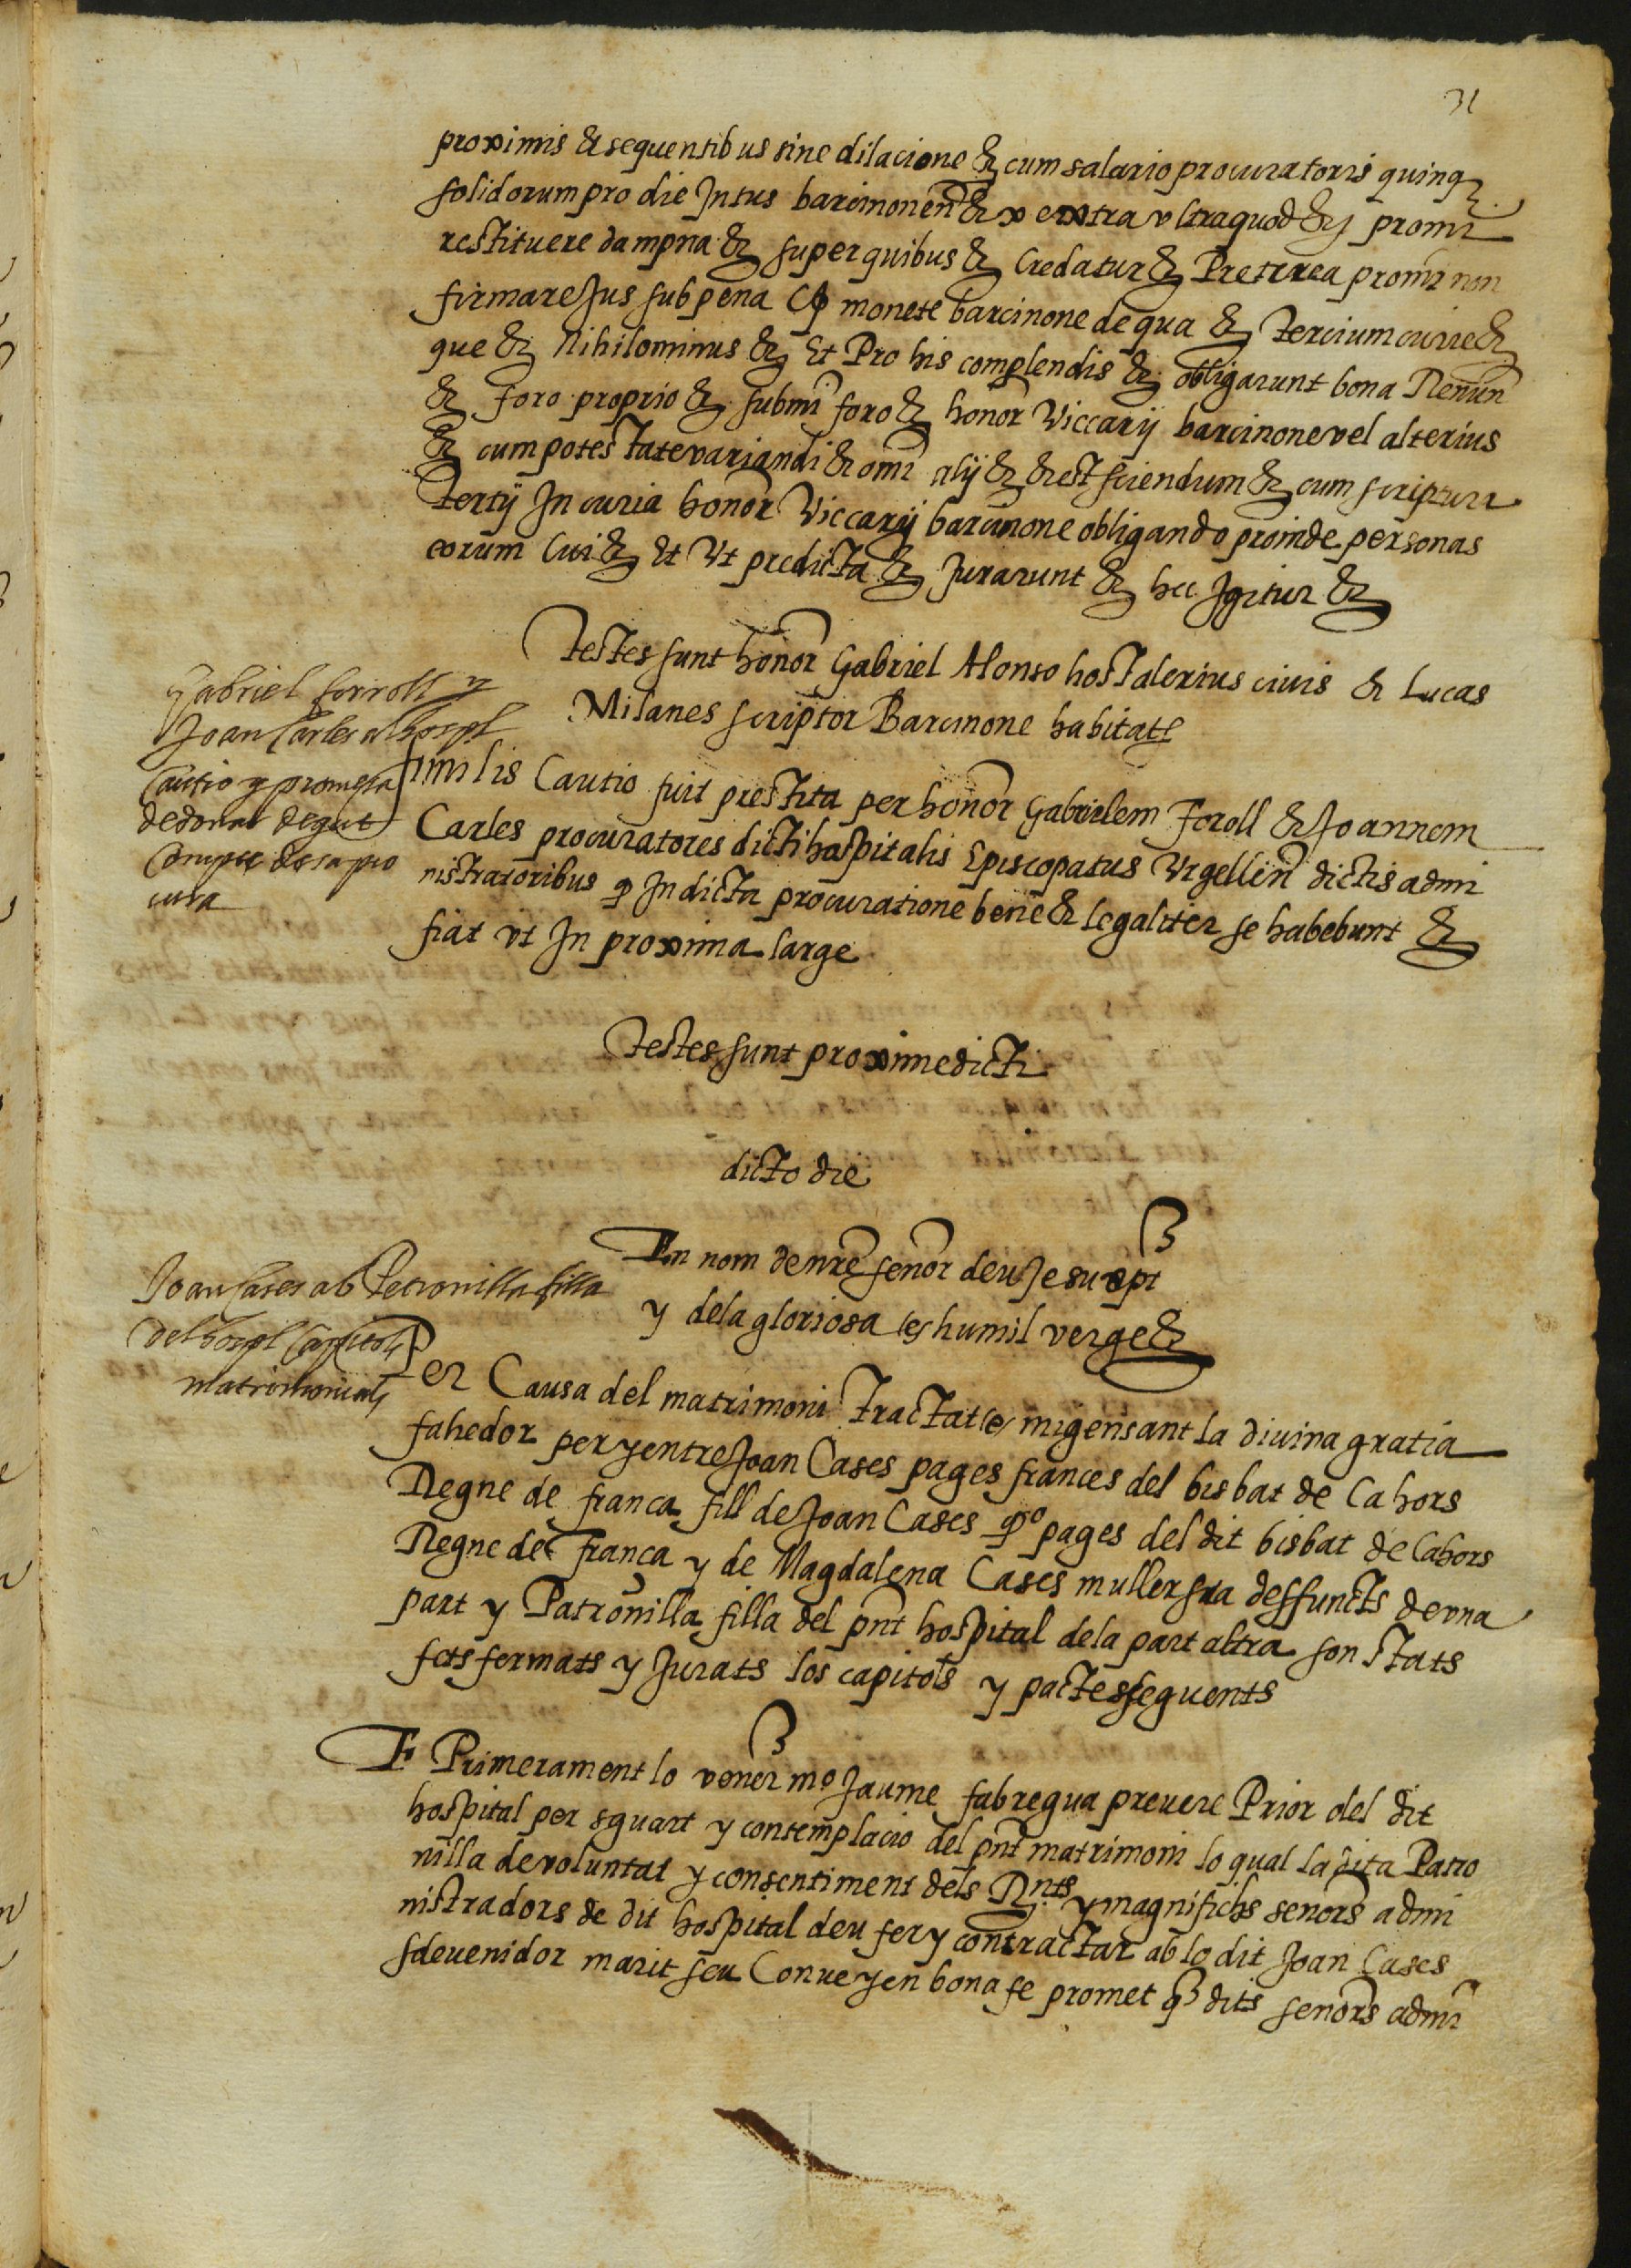 31
proximis & sequentibus sine dilacione &c cum salario procuratoris quinq3
solidorum pro die Intus barcinonen̄ & x extra vltra quod &c promī
restituere dampna &c super quibus &c Credatur &c Preterea promī non
firmare Jus sub pena monete barcinone de qua &c tercium curie &c
que &c Nihilominus &c Et Pro his complendis &c obligarunt bona Renun̄
&c foro proprio &c submī foro &c honor̄ Viccarij barcinone vel alterius
&c cum potestate variandi & om̄i alij &c & est sciendum &c cum scriptura
tertij In curia honor̄ Viccarij barcinone obligando proinde personas
eorum Cui &c Et Vt predicta &c Jurarunt &c hec Igitur &c
Testes sunt honor̄ Gabriel Alonso hostalerius ciuis & Lucas
Milanes scriptor Barcinone habitate
Gabriel ferroll y
Joan Carles al hospl
Cautio y promesa
de donar degut
Compte de sa pro
cura
Similis Cautio fuit prestita per honor̄ Gabrielem Feroll & Joannem
Carles procuratores dicti hospitalis Episcopatus Vrgellen̄ dictis admi
nistratoribus ꝙ In dicta procuratione bene & legaliter se habebunt &c
fiat vt In proxima large
Testes sunt proxime dicti
dicto die
En nom de nr̄e senōr deu Jesu xp̄t
y dela gloriosa e humil verge &c
Joan Cases ab Petronilla filla
del hospl Capitols
matrimonials
Per Causa del matrimoni tractat e migensant la diuina gratia
fahedor per y entre Joan Cases pages frances del bisbat de Cahors
Regne de franca fill de Joan Cases qº pages del dit bisbat de Cahors
Regne de França y de Magdalena Cases muller sua deffuncts de vna
part y Patronilla filla del pn̄t hospital dela part altra son stats
fets fermats y Jurats los capitols y pactes seguents
E Primerament lo vener mº Jaume fabregua preuere Prior del dit
hospital per sguart y contemplacio del pn̄t matrimoni lo qual la dita Patro
nilla de voluntat y consentiment dels Rnts y magnifichs senors admi
nistradors de dit hospital deu fer y contractar ab lo dit Joan Cases
sdeuenidor marit seu Conue y en bona fe promet q̄ dits senōrs admī